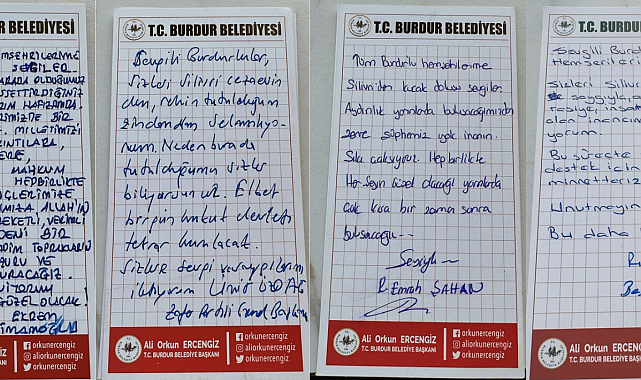 R BELEDİYESİ
MŞEHRİLERİME
SEVGİLER
BURADA OLDUĞUMUZ
HİSSETTİRDİĞİNİZ
HAFIZAMDA
BİR
MİLLETİMİZİ
MAHKUM
HEPBİRLİKTE
ALLAH'IN
BİR
TOPRAKLARIN
VE
GÜZEL OLACAK!
EKREM
İMAMOĞLU
NGİZ
BAŞKANI
orkunercengiz
aliorkunercengiz
orkunercengiz
T.C. BURDUR BELEDİYESİ
Sevgili Burdurlular,
sizleri Silivri cezaevin
den, rehin tutulduğum
zindandan selamlıyo
rum. Neden burada
tutulduğumu sizler
biliyorsunuz. Elbet
birgün hukuk devleti
tekrar kurulacak.
Sizlere sevgi ve saygılarımı
iletiyorum Ümit ÖZDAĞ
Zafer Partisi Genel Başkanı
Ali Orkun ERCENGİZ
T.C. BURDUR BELEDİYE BAŞKANI
orkunercengiz
aliorkunercengiz
orkunercengiz
T.C. BURDUR BELEDİYESİ
Tüm Burdurlu hemşehrilerime
Silivri'den kucak dolusu sevgiler.
Aydınlık yarınlarda buluşacağımızdan
zerre şüpheniz yok inanın.
Sıkı çalışıyoruz. Hep birlikte
Her şeyin güzel olacağı yarınlarda
çok kısa bir zaman sonra
buluşacağız...
Sevgiyle
R. Emrah ŞAHAN
Ali Orkun ERCENGİZ
T.C. BURDUR BELEDİYE BAŞKANI
orkunercengiz
aliorkunercengiz
orkunercengiz
Sevgili Bur
Hemşerileri
Sizleri Siliv
saygıyla
olan inancım
yorum.
Bu süreçte
destek için
minnettarız
Unutmayın
Bu daha
Ali O
T.C. BU